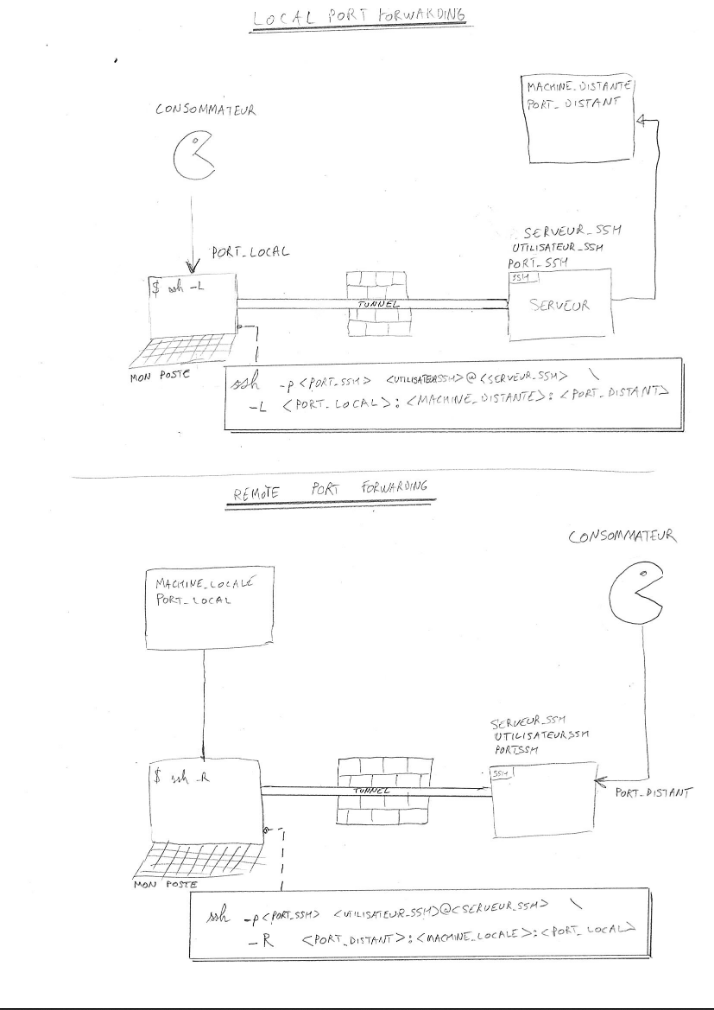 LOCAL PORT FORWARDING
MACHINE_DISTANTE
PORT_DISTANT
CONSOMMATEUR
SERVEUR_SSH
UTILISATEUR_SSH
PORT_SSH
PORT_LOCAL
$ ssh -L
TUNNEL
SSH
SERVEUR
MON POSTE
ssh -p <PORT_SSH> <UTILISATEURSSH>@<SERVEUR_SSH> \
-L <PORT_LOCAL>:<MACHINE_DISTANTE>:<PORT_DISTANT>
REMOTE PORT FORWARDING
CONSOMMATEUR
MACHINE_LOCALE
PORT_LOCAL
SERVEUR_SSH
UTILISATEURSSH
PORTSSH
$ ssh -R
TUNNEL
SSH
PORT_DISTANT
MON POSTE
ssh -p <PORT_SSH> <UTILISATEUR_SSH>@<SERVEUR_SSH> \
-R <PORT_DISTANT>:<MACHINE_LOCALE>:<PORT_LOCAL>